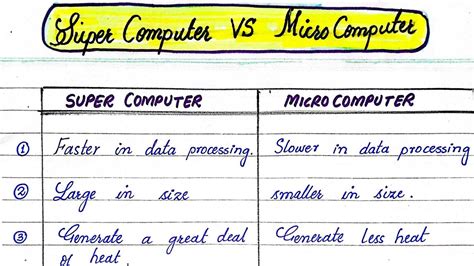 Super Computer VS Micro Computer
SUPER COMPUTER MICRO COMPUTER
① Faster in data processing. Slower in data processing
② Large in size smaller in size.
③ Generate a great deal Generate less heat
of heat.